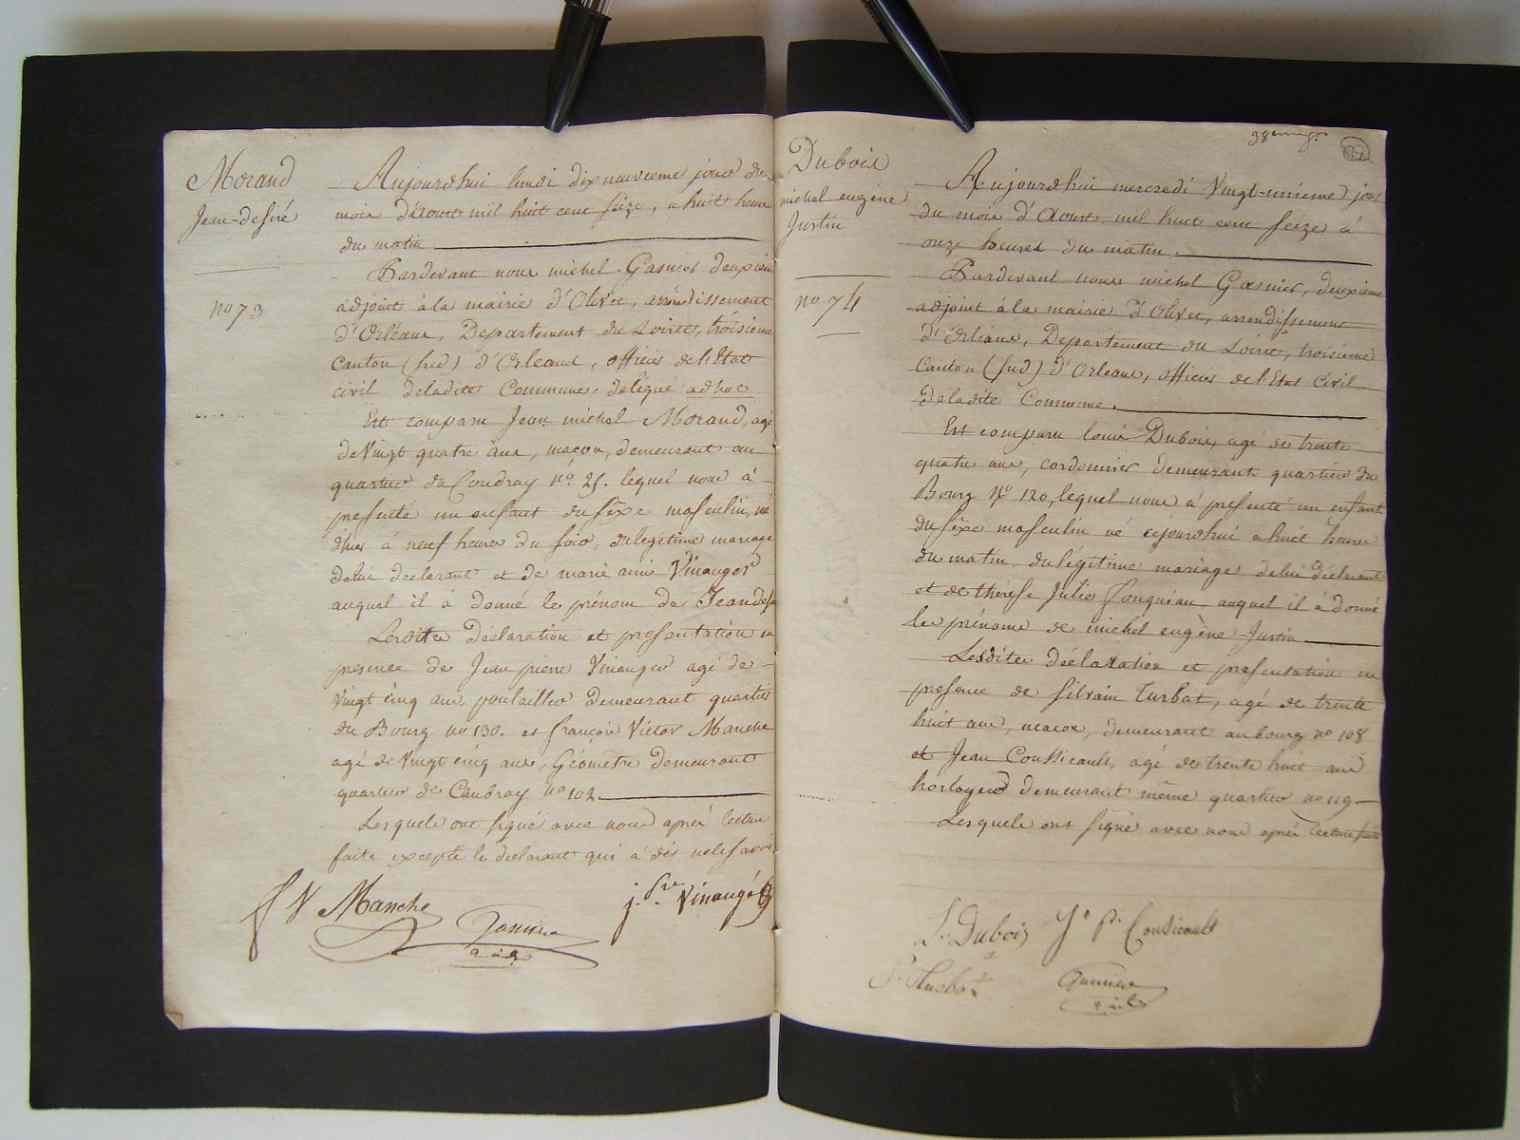 Morand
Jean-desiré
no 73
Aujourdhui lundi dix neuvieme jour du
mois d'aoust mil huit cent seize, a huit heures
du matin
Pardevant nous michel Gasnier deuxieme
adjoint à la mairie d'Olivet, arrondissement
d'Orléans, Departement du Loiret, troisieme
Canton (sud) d'Orleans, officier de l'Etat
civil deladite Commune, delégué adhoc
Est comparu Jean michel Morand, agé
de Vingt quatre ans, maçon, demeurant au
quartier du Coudray no. 25. lequel nous à
presenté un enfant du sexe masculin, né
d'hier à neuf heures du soir, de legitime mariage
de lui declarant et de marie anne Vinauger
auquel il à donné le prénom de Jean desiré
Lesdites déclaration et presentation en
presence de Jean pierre Vinauger agé de
Vingt cinq ans, poulaillier demeurant quartier
du Bourg no 130. et françois Victor Manche
agé de Vingt cinq ans, Géometre demeurant
quartier de Caubray no 102
Lesquels ont signé avec nous après lecture
faite excepté le declarant qui à dit nele savoir
f V Manche
j. Pre Vinaugé
Gasnier
adj
Dubois
michel eugène
Justin
no 74
Aujourdhui mercredi Vingt-unieme jour
du mois d'Aoust mil huit cent seize à
onze heures du matin.
Pardevant nous michel Gasnier, deuxieme
adjoint à la mairie d'Olivet, arrondissement
d'Orléans, Departement du Loiret, troisieme
Canton (sud) d'Orleans, officier de l'Etat Civil
deladite Commune.
Est comparu louis Dubois, agé de trente
quatre ans, cordonnier demeurant quartier du
Bourg No 120, lequel nous à presenté un enfant
du sexe masculin né cejourdhui a huit heures
du matin, de légitime mariage delui déclarant
et de thérèse Julie auquel il à donné
les prénoms de michel eugène Justin
Lesdites déclaration et presentation en
presence de Silvain Turbat, agé de trente
huit ans, macon, demeurant au bourg no 108
et Jean Coussicault, agé de trente huit ans
horloger demeurant même quartier no 119
Lesquels ont signé avec nous après lecture faite
L. Dubois
Je P. Cousicault
Gasnier
adj